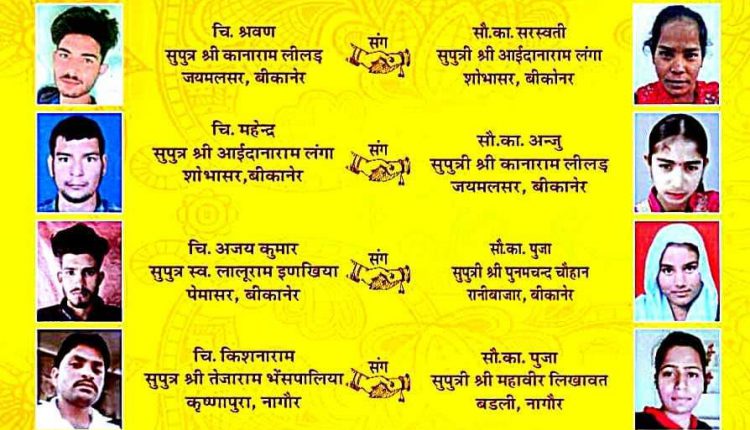 चि. श्रवण
सुपुत्र श्री कानाराम लीलड़
जयमलसर, बीकानेर
संग
सौ.का. सरस्वती
सुपुत्री श्री आईदानाराम लंगा
शोभासर, बीकोनर
चि. महेन्द्र
सुपुत्र श्री आईदानाराम लंगा
शोभासर,बीकानेर
संग
सौ.का. अन्जु
सुपुत्री श्री कानाराम लीलड़
जयमलसर, बीकानेर
चि. अजय कुमार
सुपुत्र स्व. लालूराम इणखिया
पेमासर, बीकानेर
संग
सौ.का. पुजा
सुपुत्री श्री पुनमचन्द चौहान
रानीबाजार, बीकानेर
चि. किशनाराम
सुपुत्र श्री तेजाराम भेंसपालिया
कृष्णापुरा, नागौर
संग
सौ.का. पुजा
सुपुत्री श्री महावीर लिखावत
बडली, नागौर